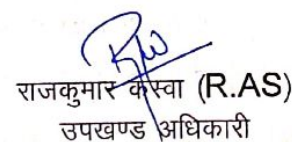 राजकुमार कस्वा (R.AS)
उपखण्ड अधिकारी